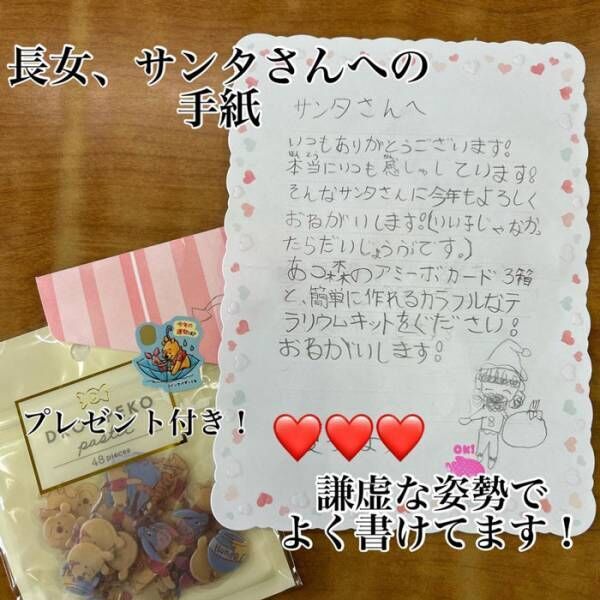 長女、サンタさんへの
手紙
サンタさんへ
いつもありがとうございます!
本当にいつも感しゃしています!
そんなサンタさんに今年もよろしく
おねがいします!(いい子じゃなか
たらだいじょうぶです。)
あつ森のアミーボカード3箱
と、簡単に作れるカラフルなテ
ラリウムキットをください!
おねがいします!
OK!
今年の
運勢は?
プレゼント付き!
pastel
48 pieces
謙虚な姿勢で
よく書けてます!